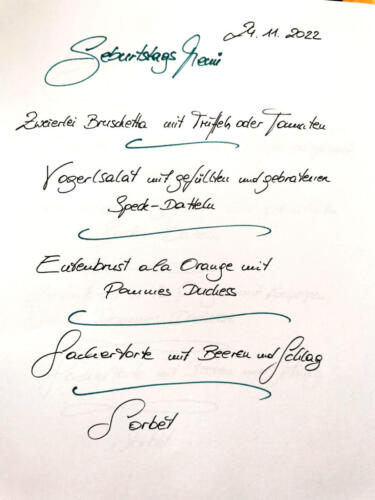 24.11.2022
Geburtstags Menü
Zweierlei Bruschetta mit Trüffeln oder Tomaten
Vogerlsalat mit gefüllten und gebratenen
Speck-Datteln
Entenbrust a la Orange mit
Pommes Duchess
Sachertorte mit Beeren und Schlag
Sorbet